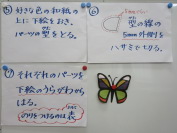 ⑤ 好きな色の和紙の
上に下絵をおき、
パーツの型をとる。
⑥
型の線の
5mm外側を
ハサミで切る。
⑦ それぞれのパーツを
下絵のうらがわから
はる。
のりをつけるのは表